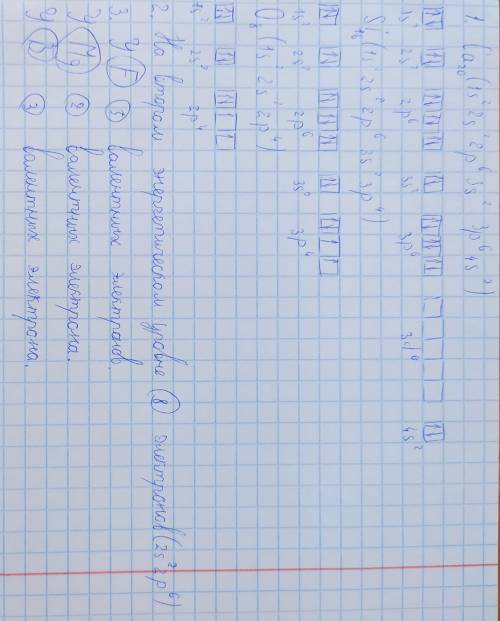 1. Ca₂₀ (1s² 2s² 2p⁶ 3s² 3p⁶ 4s²)
1s² 2s² 2p⁶ 3s² 3p⁶ 3d⁰ 4s²
S₁₆ (1s² 2s² 2p⁶ 3s² 3p⁴)
1s² 2s² 2p⁶ 3s² 3p⁴
O₈ (1s² 2s² 2p⁴)
1s² 2s² 2p⁴
2. На втором энергетическом уровне 8 электронов (2s² 2p⁶)
3. У F валентных электронов.
У Mg 2 валентных электрона.
У B 3 валентных электрона.